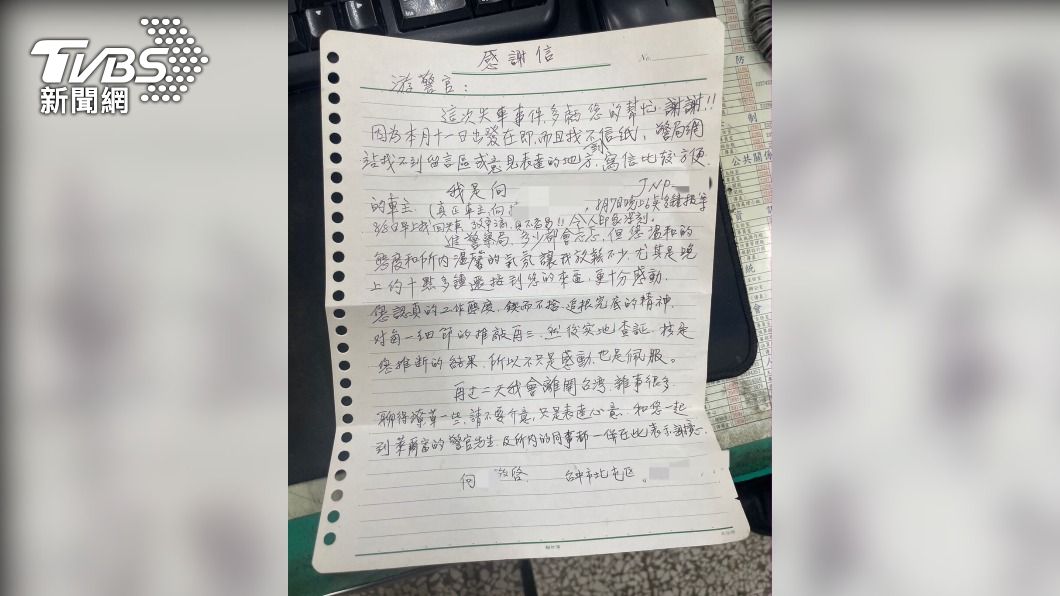 TVBS
新聞網
感謝信
No.
游警官：
這次失車事件多虧您的幫忙.謝謝!!
因為本月十一日出發在即,而且找不到信紙,警局網
站找不到留言區或意見表達的地方,寫信比較方便.
我是向 JNP-
的車主.(真正車主,何 ,8月7日晚上6點8鐘報案
8/8日早上找回失車
進警察局.多少都會忐忑,但您溫和的
態度和所內溫馨的氣氛讓我放鬆不少.尤其是晚
上約十點多鐘還接到您的來電,更十分感動.
您認真的工作態度.鍥而不捨.追根究底的精神.
對每一細節的推敲再三.然後實地查証.
您推斷的結果.所以不只是感動.也是佩服。
再過二天我會離開台灣.雜事很多.
聊得潦草一些,請不要介意,只是表達心意.和您一起
到萊爾富的警官先生及所內的同事都一併在此表示謝意.
何 敬啓. 台中市北屯區